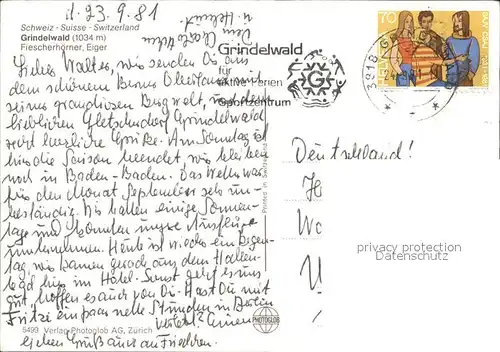 d. 23.9.81
Schweiz - Suisse - Switzerland
Grindelwald (1034 m)
Fiescherhörner, Eiger
Lieber Walter, wir senden Dir aus
dem schönem Berner Oberland mit
seiner grandiosen Bergwelt, aus dem
lieblichen Gletscherdorf Grindelwald
recht herzliche Grüße. Am Sonntag ist
hier die Saison beendet, wir bleiben
noch in Baden-Baden. Das Wetter war
für den Monat September sehr un-
beständig. Wir hatten einige Sonnen-
tage und konnten unsere Ausflüge
unternehmen. Heute ist wieder ein Regen-
tag, wir kamen gerade aus dem Hallen-
bad hier im Hotel. Sonst geht es uns
gut, hoffen es auch von Dir. Hast Du mit
Fritze ein paar nette Stunden in Berlin
verlebt?
lichen Gruß auch an Friedchen.
Dein
u. Helmut
Grindelwald
für
aktive Ferien
Sportzentrum
G
3818 G
70
HELVETIA
Printed in Switzerland
Deutschland!
H
W
U
privacy protection
Datenschutz
5490 Verlag Photoglob AG, Zürich
PHOTOGLOB